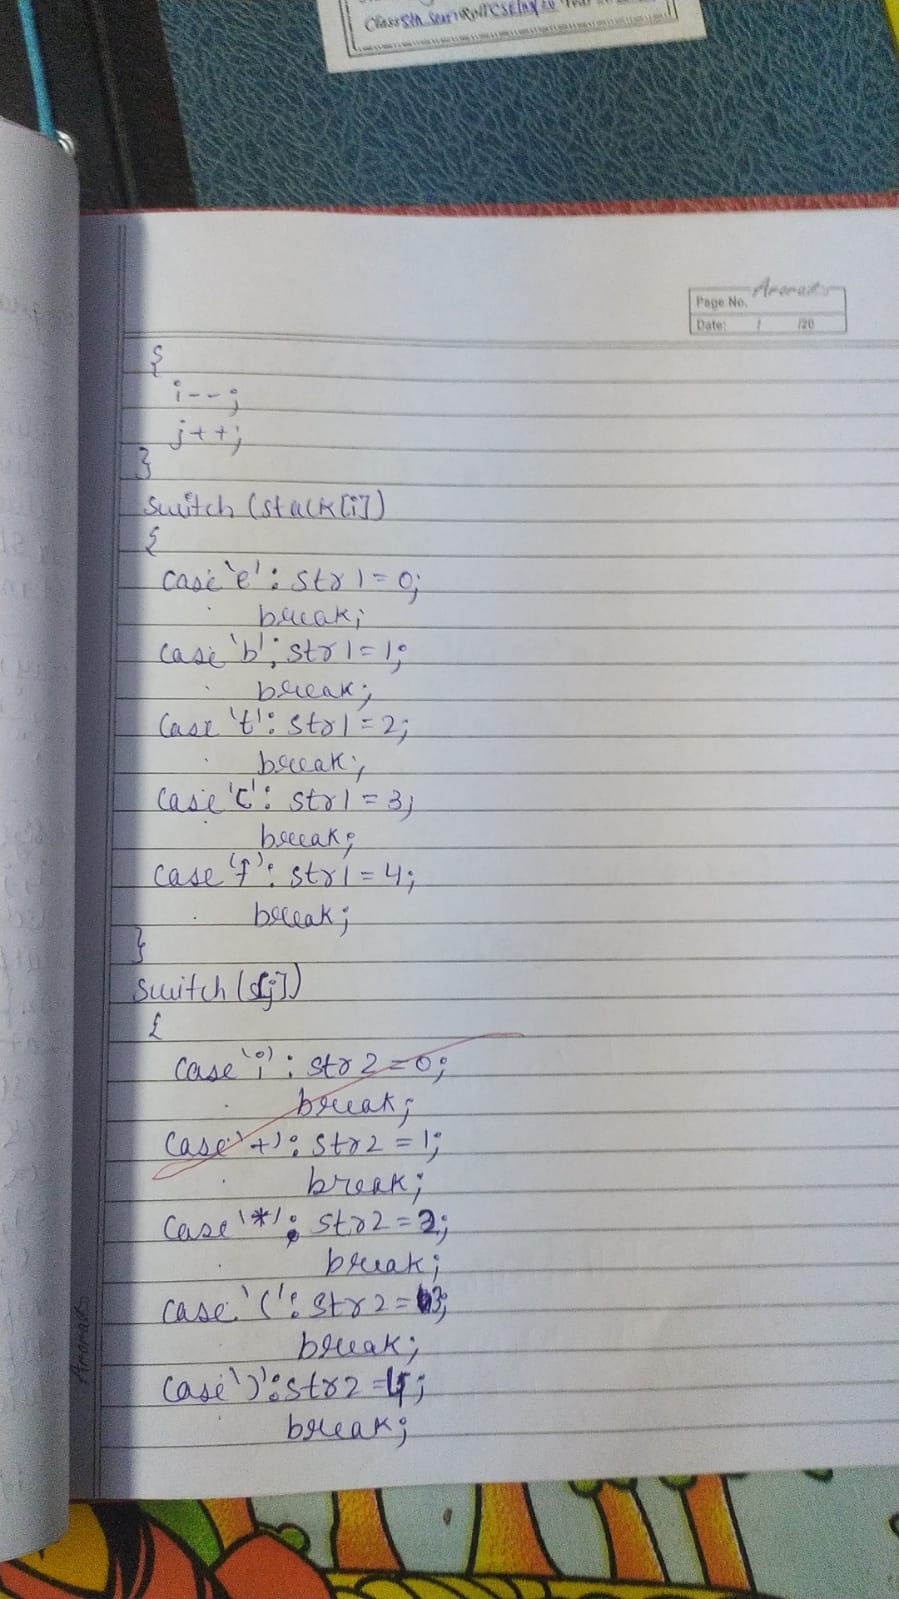 Class 5th Sem. Roll CSE/
Page No.
Date: / /20
{
i--;
j++;
}
switch (stack[i])
{
case 'e': str1=0;
break;
case 'b'; str1=1;
break;
case 't': str1=2;
break;
case 'c': str1=3;
break;
case 'f': str1=4;
break;
}
switch (s[j])
{
case 'i': str2=0;
break;
case '+': str2=1;
break;
case '*': str2=2;
break;
case '(': str2=3;
break;
case ')': str2=4;
break;